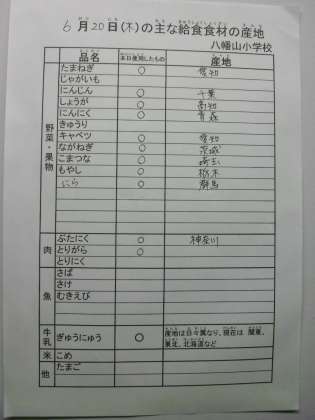 6月20日(木)の主な給食食材の産地
八幡山小学校
品名 本日使用したもの 産地
野菜・果物
たまねぎ ○ 愛知
じゃがいも
にんじん ○ 千葉
しょうが ○ 高知
にんにく ○ 青森
きゅうり
キャベツ ○ 愛知
ながねぎ ○ 茨城
こまつな ○ 埼玉
もやし ○ 栃木
にら ○ 群馬
肉
ぶたにく ○ 神奈川
とりがら ○
とりにく
魚
さば
さけ
むきえび
牛乳 ぎゅうにゅう ○ 産地は日々異なり、現在は 関東、
東北、北海道など
米 こめ
他 たまご